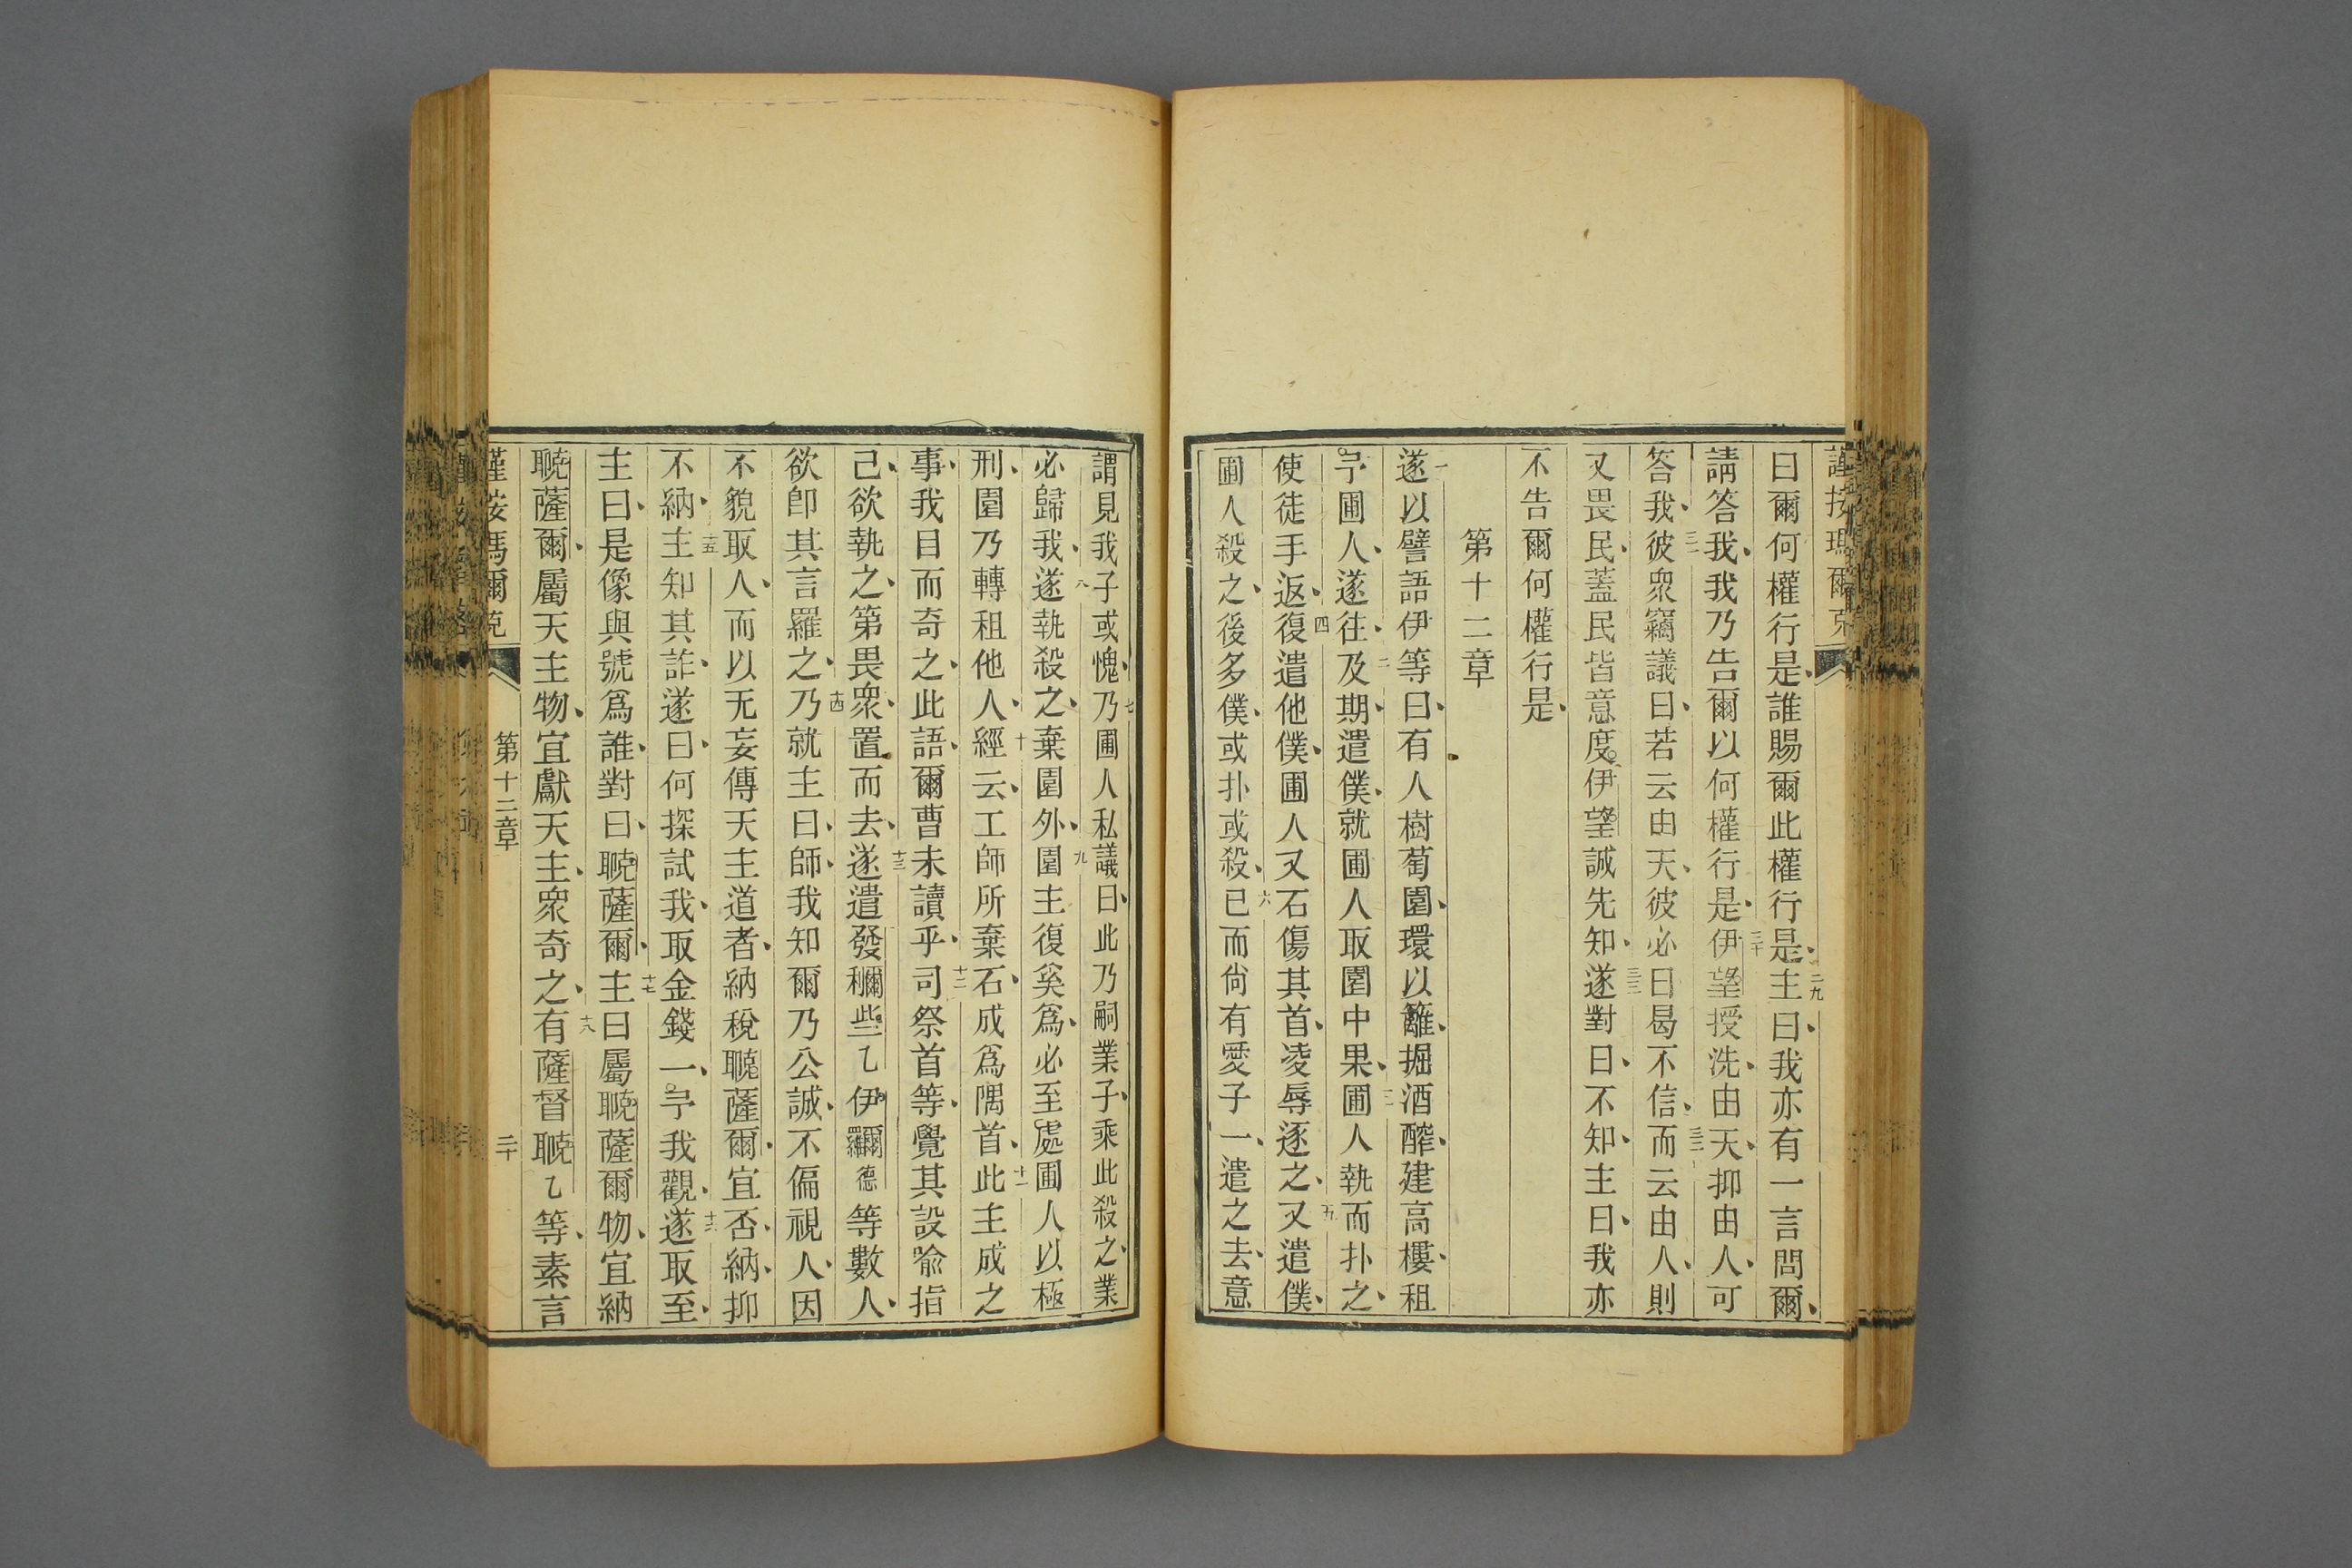 謹按瑪爾克
曰爾何權行是誰賜爾此權行是二九主曰我亦有一言問爾
請答我我乃告爾以何權行是三十伊望授洗由天抑由人可
答我三一彼衆竊議曰若云由天彼必曰曷不信三二而云由人則
又畏民蓋民皆意度伊望誠先知三三遂對曰不知主曰我亦
不告爾何權行是
第十二章
一遂以譬語伊等曰有人樹萄園環以籬掘酒醡建高樓租
予圃人遂往二及期遣僕就圃人取園中果三圃人執而扑之
使徒手返四復遣他僕圃人又石傷其首凌辱逐之五又遣僕
圃人殺之後多僕或扑或殺六已而尙有愛子一遣之去意
謂見我子或愧七乃圃人私議曰此乃嗣業子乘此殺之業
必歸我八遂執殺之棄園外九園主復奚爲必至處圃人以極
刑園乃轉租他人十經云工師所棄石成爲隅首十一此主成之
事我目而奇之此語爾曹未讀乎十二司祭首等覺其設喻指
己欲執之第畏衆置而去十三遂遣發穪些乙伊羅德等數人
欲卽其言羅之十四乃就主曰師我知爾乃公誠不偏視人因
不貌取人而以无妄傳天主道者納稅𦗟薩爾宜否納抑
不納十五主知其詐遂曰何探試我取金錢一予我觀十六遂取至
主曰是像與號爲誰對曰薩爾十七主曰屬薩爾物宜納
薩爾屬天主物宜獻天主衆奇之十八有薩督乙等素言
謹按瑪爾克 第十二章 二十